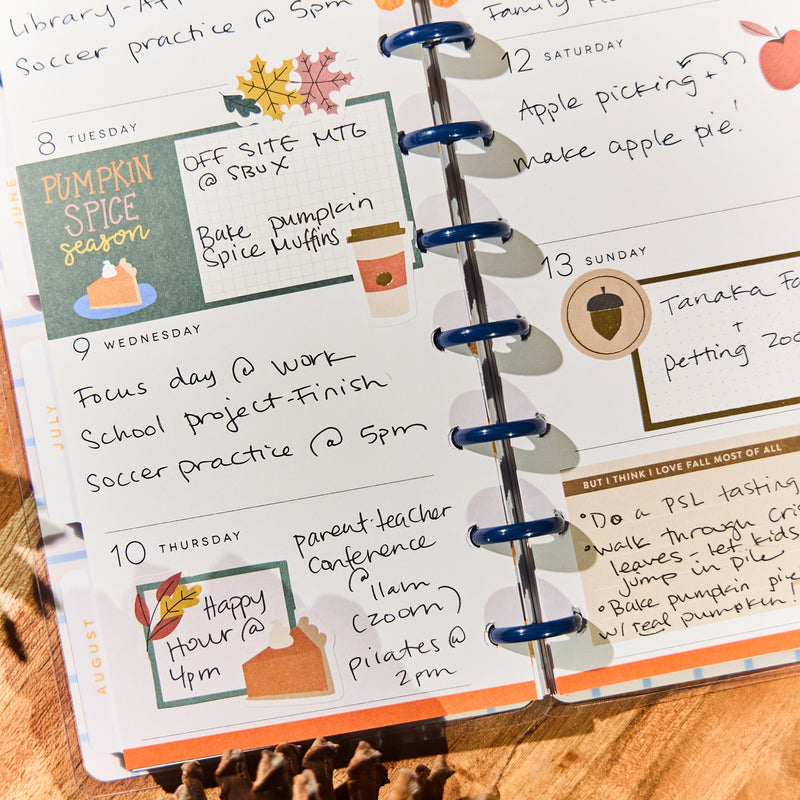 Library-
Soccer practice @ 5pm
8 TUESDAY
PUMPKIN
SPICE
season
OFF SITE MTG
@ SBUX
Bake pumpkin
Spice Muffins
9 WEDNESDAY
Focus day @ work
School project-Finish
Soccer practice @ 5pm
10 THURSDAY
Happy
Hour @
4pm
parent-teacher
conference
@ 11am
(zoom)
pilates @
2pm
Family
12 SATURDAY
Apple picking +
make apple pie!
13 SUNDAY
Tanaka
+
petting
BUT I THINK I LOVE FALL MOST OF ALL
•Do a PSL tasting
•walk through
leaves - let kids
jump in pile
•Bake pumpkin
w/ real pumpkin!
JUNE
JULY
AUGUST